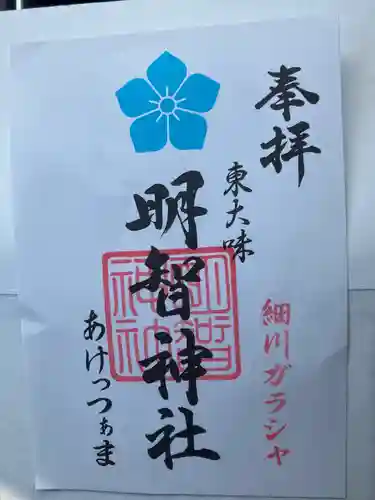 奉拝
東大味
明智神社
明智神社
細川ガラシャ
あけっつぁま